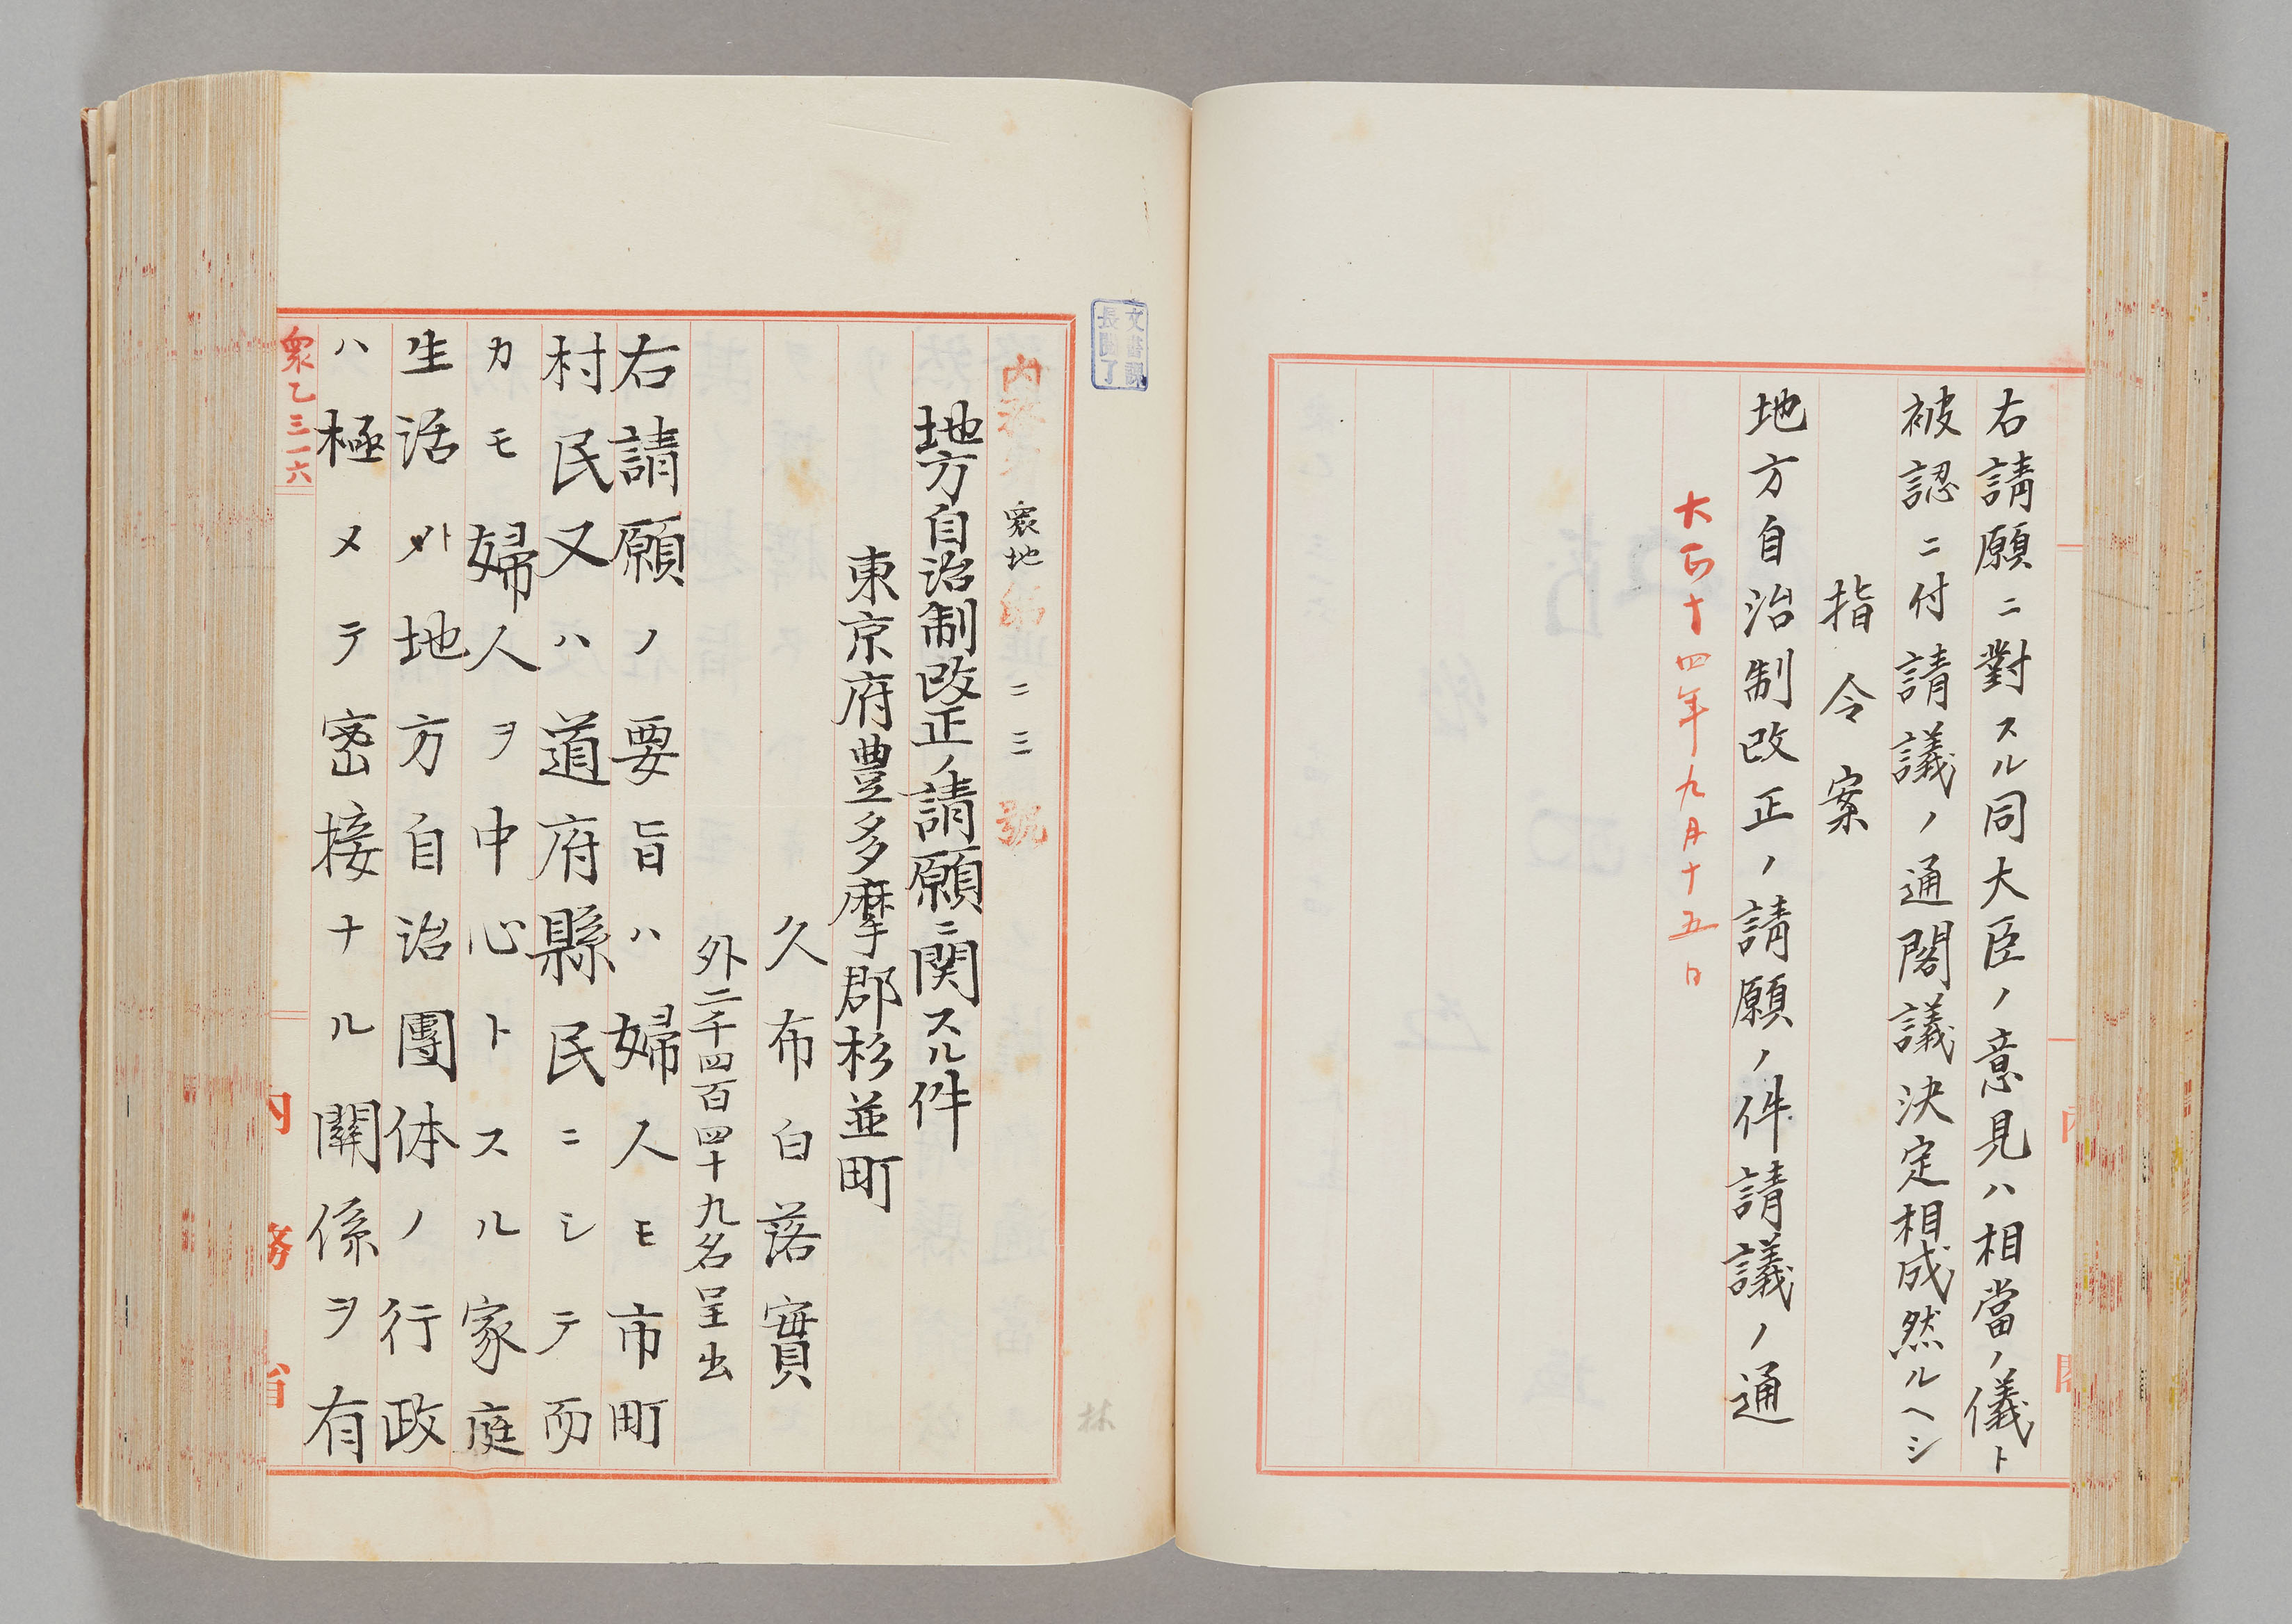 右請願ニ對スル同大臣ノ意見ハ相當ノ儀ト
被認ニ付請議ノ通閣議決定相成然ルヘシ
指令案
地方自治制改正ノ請願ノ件請議ノ通
大正十四年九月十五日
文書課
長閲了
内務省 衆地第二三號
地方自治制改正ノ請願ニ関スル件
東京府豊多摩郡杉並町
久布白落實
外二千四百四十九名呈出
右請願ノ要旨ハ婦人モ市町
村民又ハ道府縣民ニシテ而
カモ婦人ヲ中心トスル家庭
生活ハ地方自治團体ノ行政
ハ極メテ密接ナル關係ヲ有
衆乙三一六
内務省
林